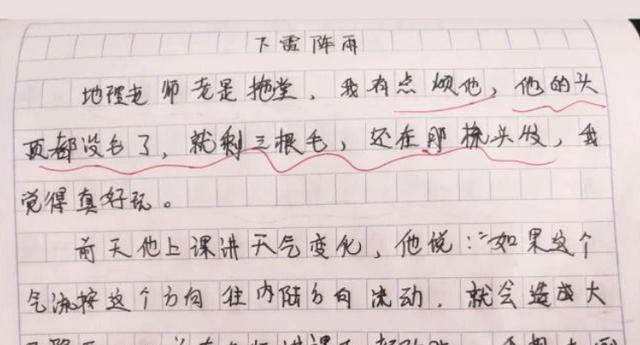 下雷阵雨
地理老师老是拖堂，我有点烦他，他的头
顶都没毛了，就剩三根毛，还在那梳头发，我
觉得真好玩。
前天他上课讲天气变化，他说："如果这个
气流按这个方向往内陆方向流动，就会造成大